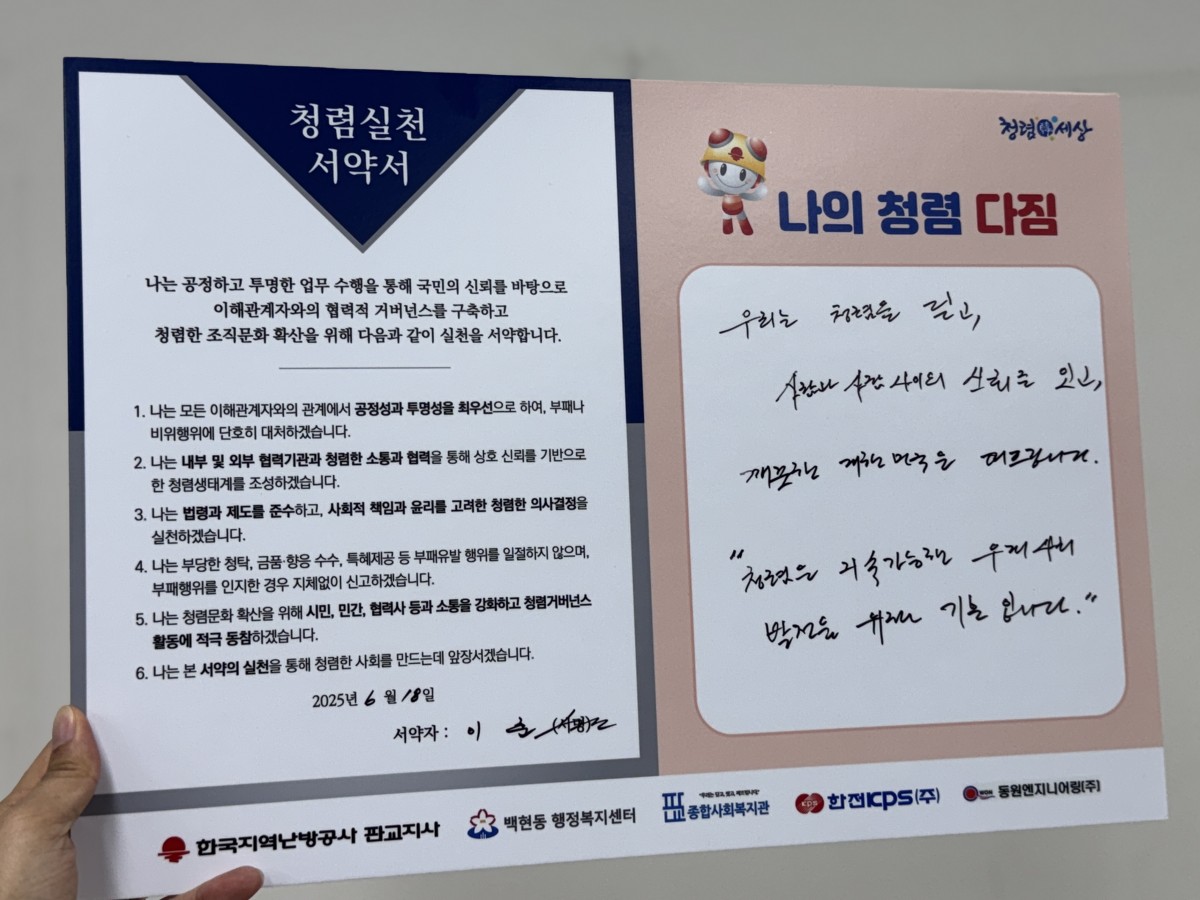 청렴실천
서약서
나는 공정하고 투명한 업무 수행을 통해 국민의 신뢰를 바탕으로
이해관계자와의 협력적 거버넌스를 구축하고
청렴한 조직문화 확산을 위해 다음과 같이 실천을 서약합니다.
1. 나는 모든 이해관계자와의 관계에서 공정성과 투명성을 최우선으로 하여, 부패나
비위행위에 단호히 대처하겠습니다.
2. 나는 내부 및 외부 협력기관과 청렴한 소통과 협력을 통해 상호 신뢰를 기반으로
한 청렴생태계를 조성하겠습니다.
3. 나는 법령과 제도를 준수하고, 사회적 책임과 윤리를 고려한 청렴한 의사결정을
실천하겠습니다.
4. 나는 부당한 청탁, 금품·향응 수수, 특혜제공 등 부패유발 행위를 일절하지 않으며,
부패행위를 인지한 경우 지체없이 신고하겠습니다.
5. 나는 청렴문화 확산을 위해 시민, 민간, 협력사 등과 소통을 강화하고 청렴거버넌스
활동에 적극 동참하겠습니다.
6. 나는 본 서약의 실천을 통해 청렴한 사회를 만드는데 앞장서겠습니다.
2025년 6 월 18일
서약자 : 이 (서명)
청렴 세상
나의 청렴 다짐
우리는 청렴을 딛고,
사람과 사람 사이의 신뢰를 잇고,
깨끗한 대한민국을
"청렴은 지속가능한 우리사회
발전을 위한 기본 입니다."
한국지역난방공사 판교지사
백현동 행정복지센터
종합사회복지관
한전KPS(주)
동원엔지니어링(주)